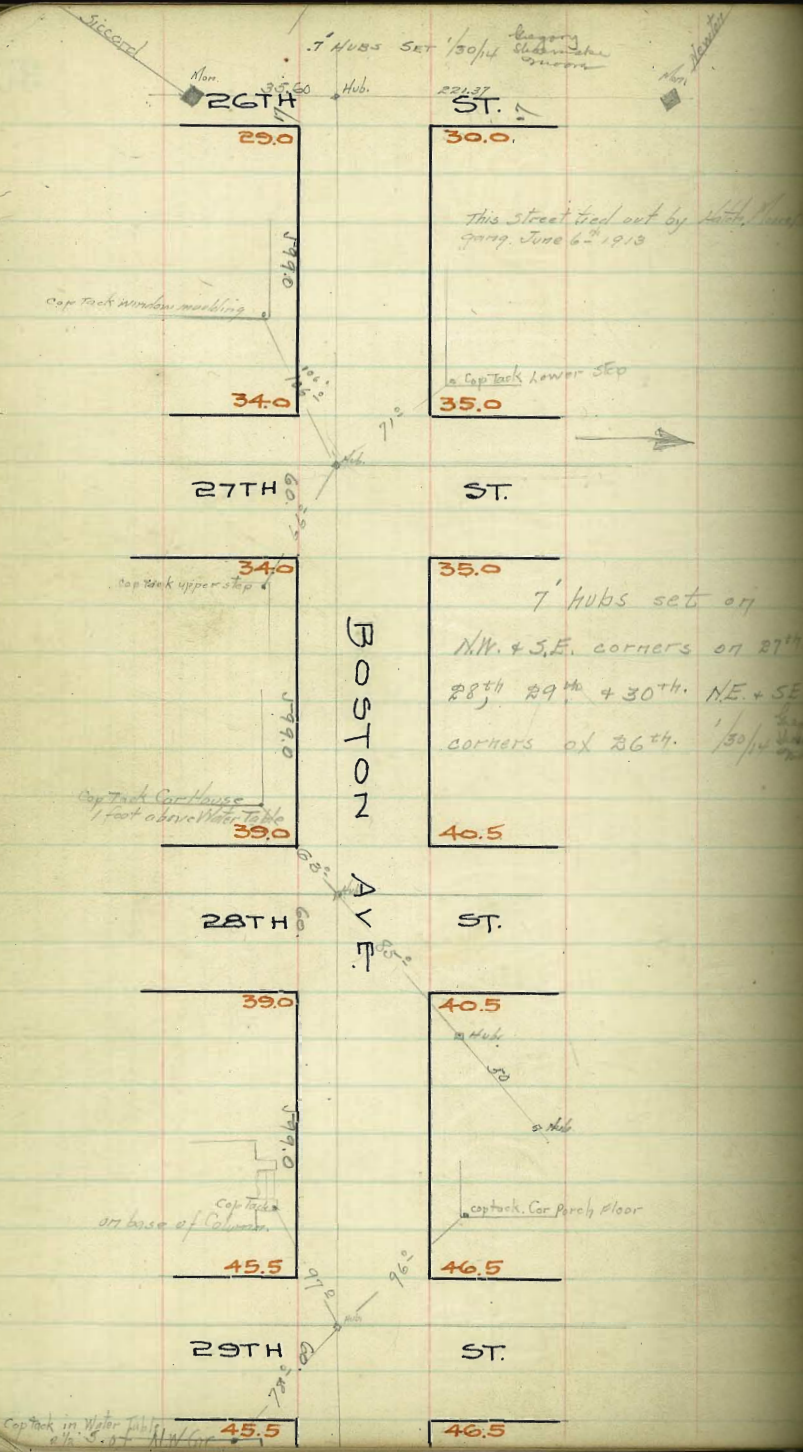 Siccard
.7' HUBS SET 1/30/14
Gregory
Shoemake
Moore
Newton
Mon.
35.60
Hub.
221.37
Mon.
26TH ST.
29.0 30.0
This street tied out by Hatch,
gang. June 6th 1913
599.0
Cop Tack Window moulding
Cop Tack Lower Step
34.0 35.0
71°
Hub.
27TH ST.
60.
34.0 35.0
Cop Tack upper step
7' hubs set on
N.W. & S.E. corners on 27th
28th, 29th & 30th. N.E. & S.E.
corners of 26th. 1/30/14
BOSTON AVE.
599.0
Cop Tack Cor House
1 foot above Water Table
39.0 40.5
63°
Hub
28TH ST.
60.
85°
39.0 40.5
Hub.
50
Hub
599.0
Cop Tack
on base of Column.
coptack. Cor Porch Floor
45.5 46.5
97°
96°
Hub
29TH ST.
60.
78°
Cop Tack in Water Table
S. of N.W. Cor
45.5 46.5